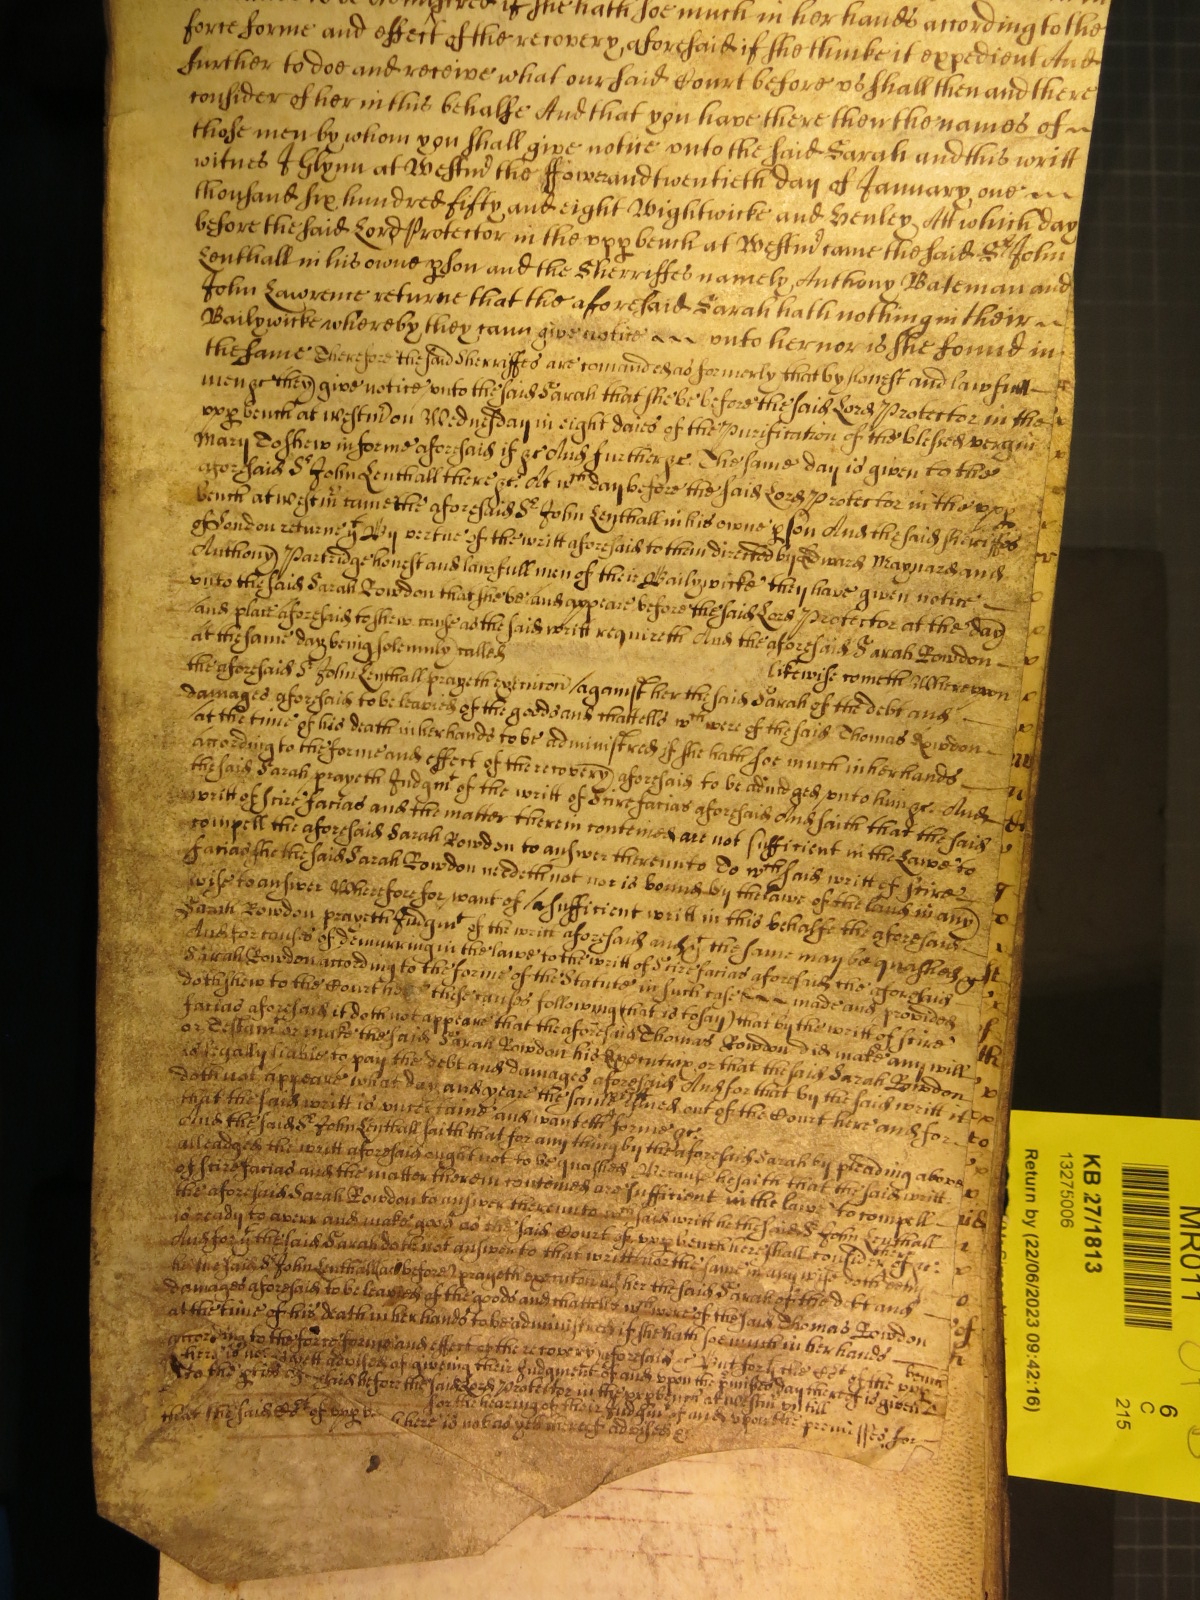 if she hath soe much in her hands according to the
force forme and effect of the recovery aforesaid if she thinke it expedient And
further to doe and receive what our said Court before us shall then and there
consider of her in this behalfe And that you have there then the names of
those men by whom you shall give notice unto the said Sarah and this writt
witnes J Glynn at Westm the ffower and twentieth day of January one
thousand six hundred fifty and eight Wightwicke and Henley Att which day
before the said Lord Protector in the upp bench at Westm came the said Sr John
Lenthall in his owne pson and the Sherriffes namely Anthony Bateman and
John Lawrence returne that the aforesaid Sarah hath nothing in their
Bailywicke whereby they cann give notice unto her nor is she found in
the same Therefore the said Sherriffes are comanded as formerly that by honest and lawfull
men &c they give notice unto the said Sarah that she be before the said Lord Protector in the
upp bench at westm on Wednesday in eight daies of the Purification of the blessed virgin
Mary To shew in forme aforesaid if &c And further &c The same day is given to the
aforesaid Sr John Lenthall there &c At wch day before the said Lord Protector in the upp
bench at westm came the aforesaid Sr John Lenthall in his owne pson And the said Sheriffes
of London returne yt By vertue of the writt aforesaid to them directed by Edward Maynard and
Anthony Partridge honest and lawfull men of their Bailywicke they have given notice
unto the said Sarah Rowdon that she be and appeare before the said Lord Protector at the day
and place aforesaid to shew cause as the said writt requireth And the aforesaid Sarah Rowdon
at the same day being solemnly called likewise cometh Whereupon
the aforesaid Sr John Lenthall prayeth execucon against her the said Sarah of the debt and
damages aforesaid to be levied of the goods and chattells wch were of the said Thomas Rowdon
at the time of his death in her hands to be administred if she hath soe much in her hands
according to the forme and effect of the recovery aforesaid to be adiudged unto him &c And
the said Sarah prayeth Judgmt of the writt of Scire facias aforesaid And saith that the said
writt of Scire facias and the matter therein conteined are not sufficient in the Lawe to
compell the aforesaid Sarah Rowdon to answer thereunto To wch said writt of Scire
facias she the said Sarah Rowdon needeth not nor is bound by the lawe of the land in any
wise to answer Wherefore for want of a sufficient writt in this behalfe the aforesaid
Sarah Rowdon prayeth Judgmt of the writt aforesaid and yt the same may be quashed &c
And for causes of demurring in the lawe to the writt of Scire facias aforesaid the aforesaid
Sarah Rowdon according to the forme of the Statute in such case made and provided
doth shew to the Court here these causes following (that is to say) that by the writt of Scire
facias aforesaid it doth not appeare that the aforesaid Thomas Rowdon did make any will
or Testamt or make the said Sarah Rowdon his Executrix or that the said Sarah Rowdon
is legally liable to pay the debt and damages aforesaid And for that by the said writt it
doth not appeare what day and yeare the same issued out of the Court here and for
that the said writt is uncertaine and wanteth forme &c
And the said Sr John Lenthall saith that for any thing by the aforesaid Sarah by pleading above
alleadged the writt aforesaid ought not to be quashed Because he saith that the said writt
of Scire facias and the matter therein conteined are sufficient in the lawe to compell
the aforesaid Sarah Rowdon to answer thereunto wch said writt he the said Sr John Lenthall
is ready to averr and make good as the said Court of upp bench here shall consider thereof &c
And for yt the said Sarah doth not answer to that writt nor the same in any wise doth deny
he the said Sr John Lenthall (as before) prayeth execucon agt her the said Sarah of the debt and
damages aforesaid to be levied of the goods and chattells wch were of the said Thomas Rowdon
at the time of his death in her hands to be administred if she hath soe much in her hands
according to the force forme and effect of the recovery aforesaid &c But for yt the Ct of the upp bench
here is not yett advised of giveing their Judgment of and upon the pmisses day thereof is given
to the pties aforesaid before the said Lord Protector in the upp bench at westm until
for the hearing of their Judgmt of and upon the premisses for
that the said Ct of upp b here is not as yet thereof advised &c
MR011
6
C
215
KB 27/1813
13275006
Return by (22/06/2023 09:42:16)